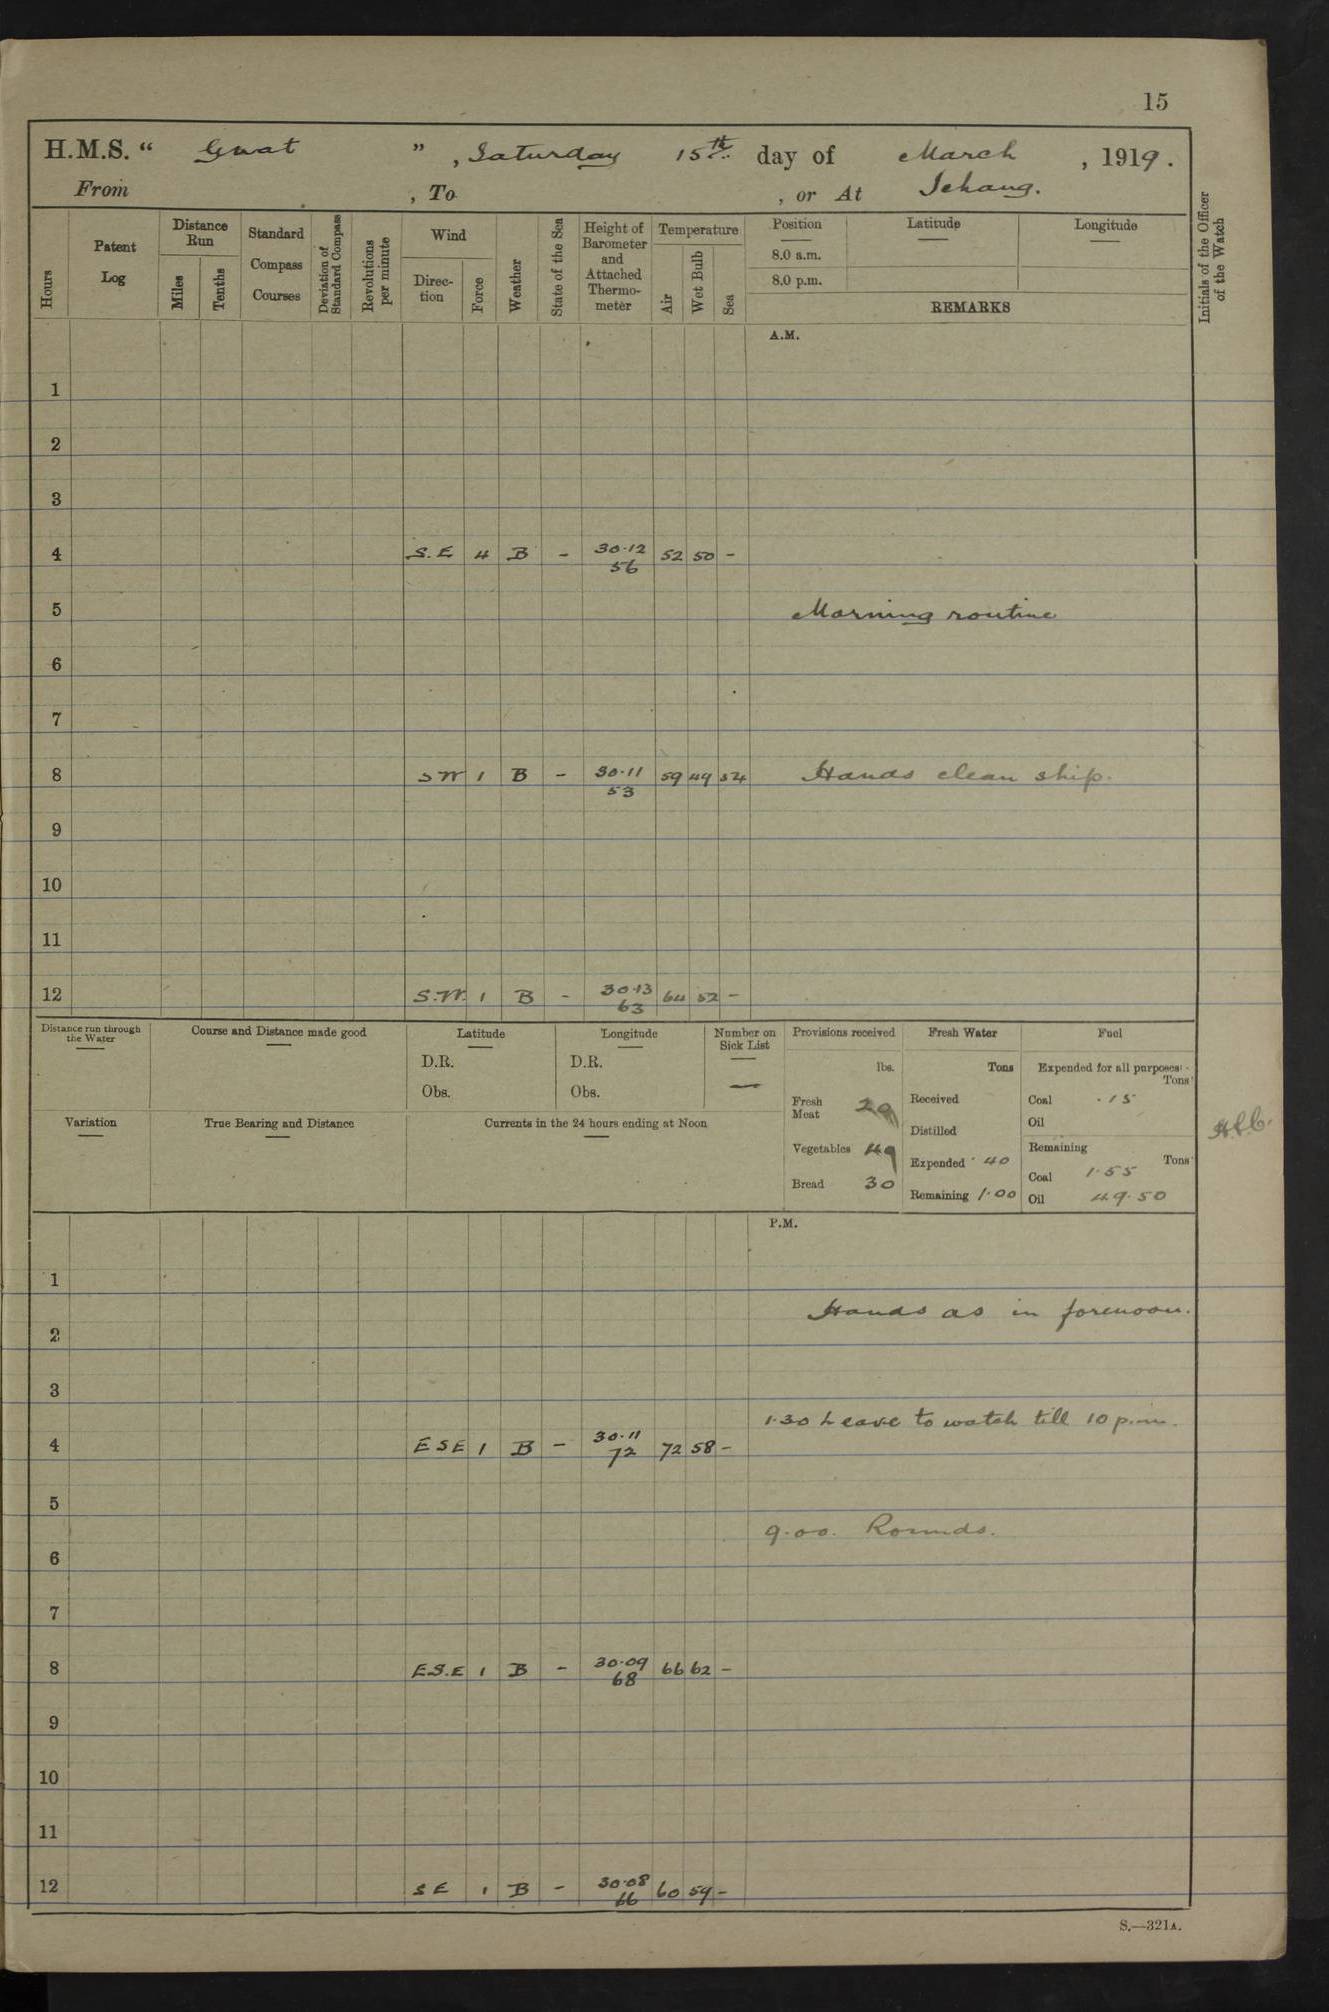 15
H.M.S. “ Gnat ” , Saturday 15th day of March , 1919.
From , To , or At Ichang.
Hours
Patent Log
Distance Run
Miles
Tenths
Standard Compass Courses
Deviation of Standard Compass
Revolutions per minute
Wind
Direc-tion
Force
Weather
State of the Sea
Height of Barometer and Attached Thermo-meter
Temperature
Air
Wet Bulb
Sea
Position
8.0 a.m.
8.0 p.m.
Latitude
Longitude
REMARKS
Initials of the Officer of the Watch
A.M.
1
2
3
4 S.E 4 B - 30.12 52 50 -
56
5 Morning routine
6
7
8 SW 1 B - 30.11 59 49 52 Hands clean ship.
53
9
10
11
12 S.W. 1 B - 30.13 64 52 -
63
Distance run through the Water
Course and Distance made good
Latitude
D.R.
Obs.
Longitude
D.R.
Obs.
Number on Sick List
—
Variation
True Bearing and Distance
Currents in the 24 hours ending at Noon
Provisions received
lbs.
Fresh Meat 29
Vegetables 49
Bread 30
Fresh Water
Tons
Received
Distilled
Expended .40
Remaining 1.00
Fuel
Expended for all purposes:-
Tons
Coal .15
Oil
Remaining
Tons
Coal 1.55
Oil 49.50
P.M.
1
Hands as in forenoon.
2
3
1.30 Leave to watch till 10 p.m.
4 ESE 1 B - 30.11 72 58 -
72
5
9.00. Rounds.
6
7
8 E.S.E 1 B - 30.09 66 62 -
68
9
10
11
12 SE 1 B - 30.08 60 59 -
66
S.—321A.